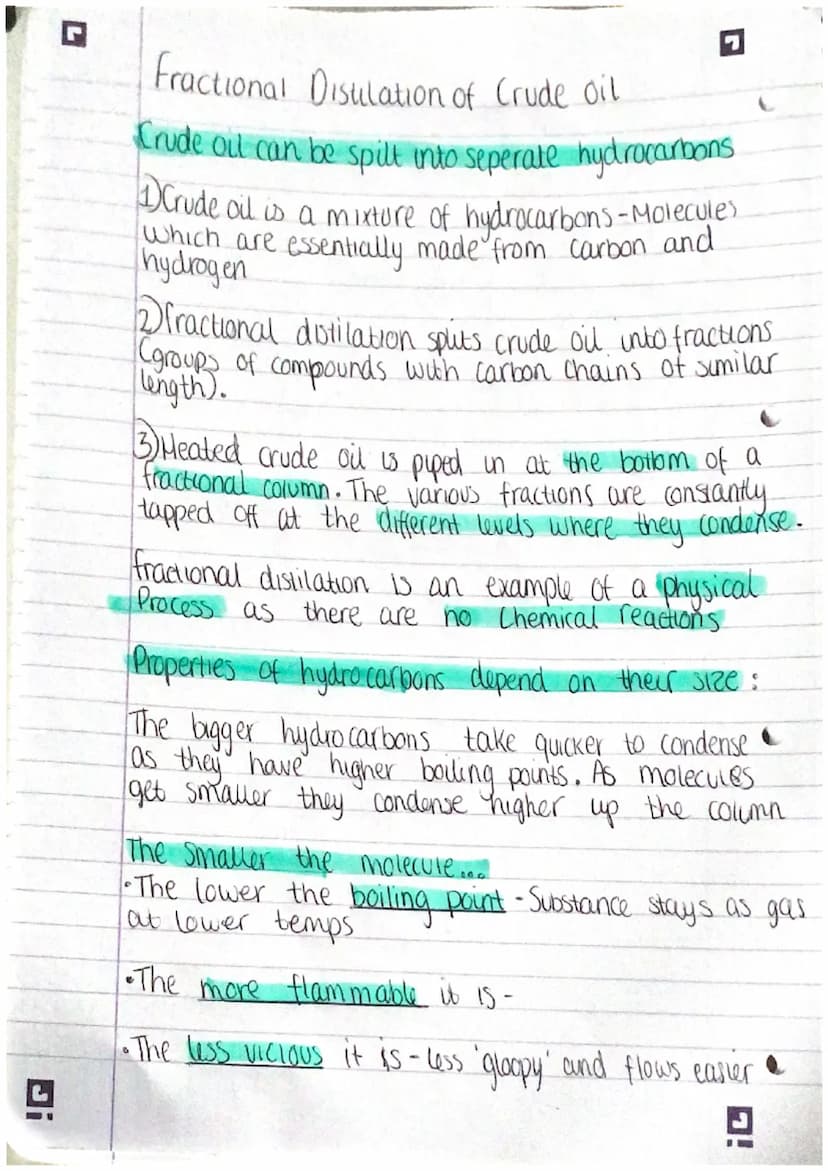 Fractional Distilation of Crude oil
Crude oil can be spilt into seperate hydrocarbons
1) Crude oil is a mixture of hydrocarbons - Molecules
which are essentially made from carbon and
hydrogen
2) fractional distilation splits crude oil into fractions
(groups of compounds with carbon chains of similar
length).
3) Heated crude oil is piped in at the bottom of a
fractional column. The various fractions are constantly
tapped off at the different levels where they condense.
fractional distilation is an example of a physical
Process as there are no Chemical reactions
Properties of hydrocarbons depend on their size :
The bigger hydrocarbons take quicker to condense
as they have higher boiling points. As molecules
get smaller they condense higher up the column
The smaller the molecule...
• The lower the boiling point - Substance stays as gas
at lower temps
• The more flammable it is -
• The less vicious it is - less 'gloopy' and flows easier